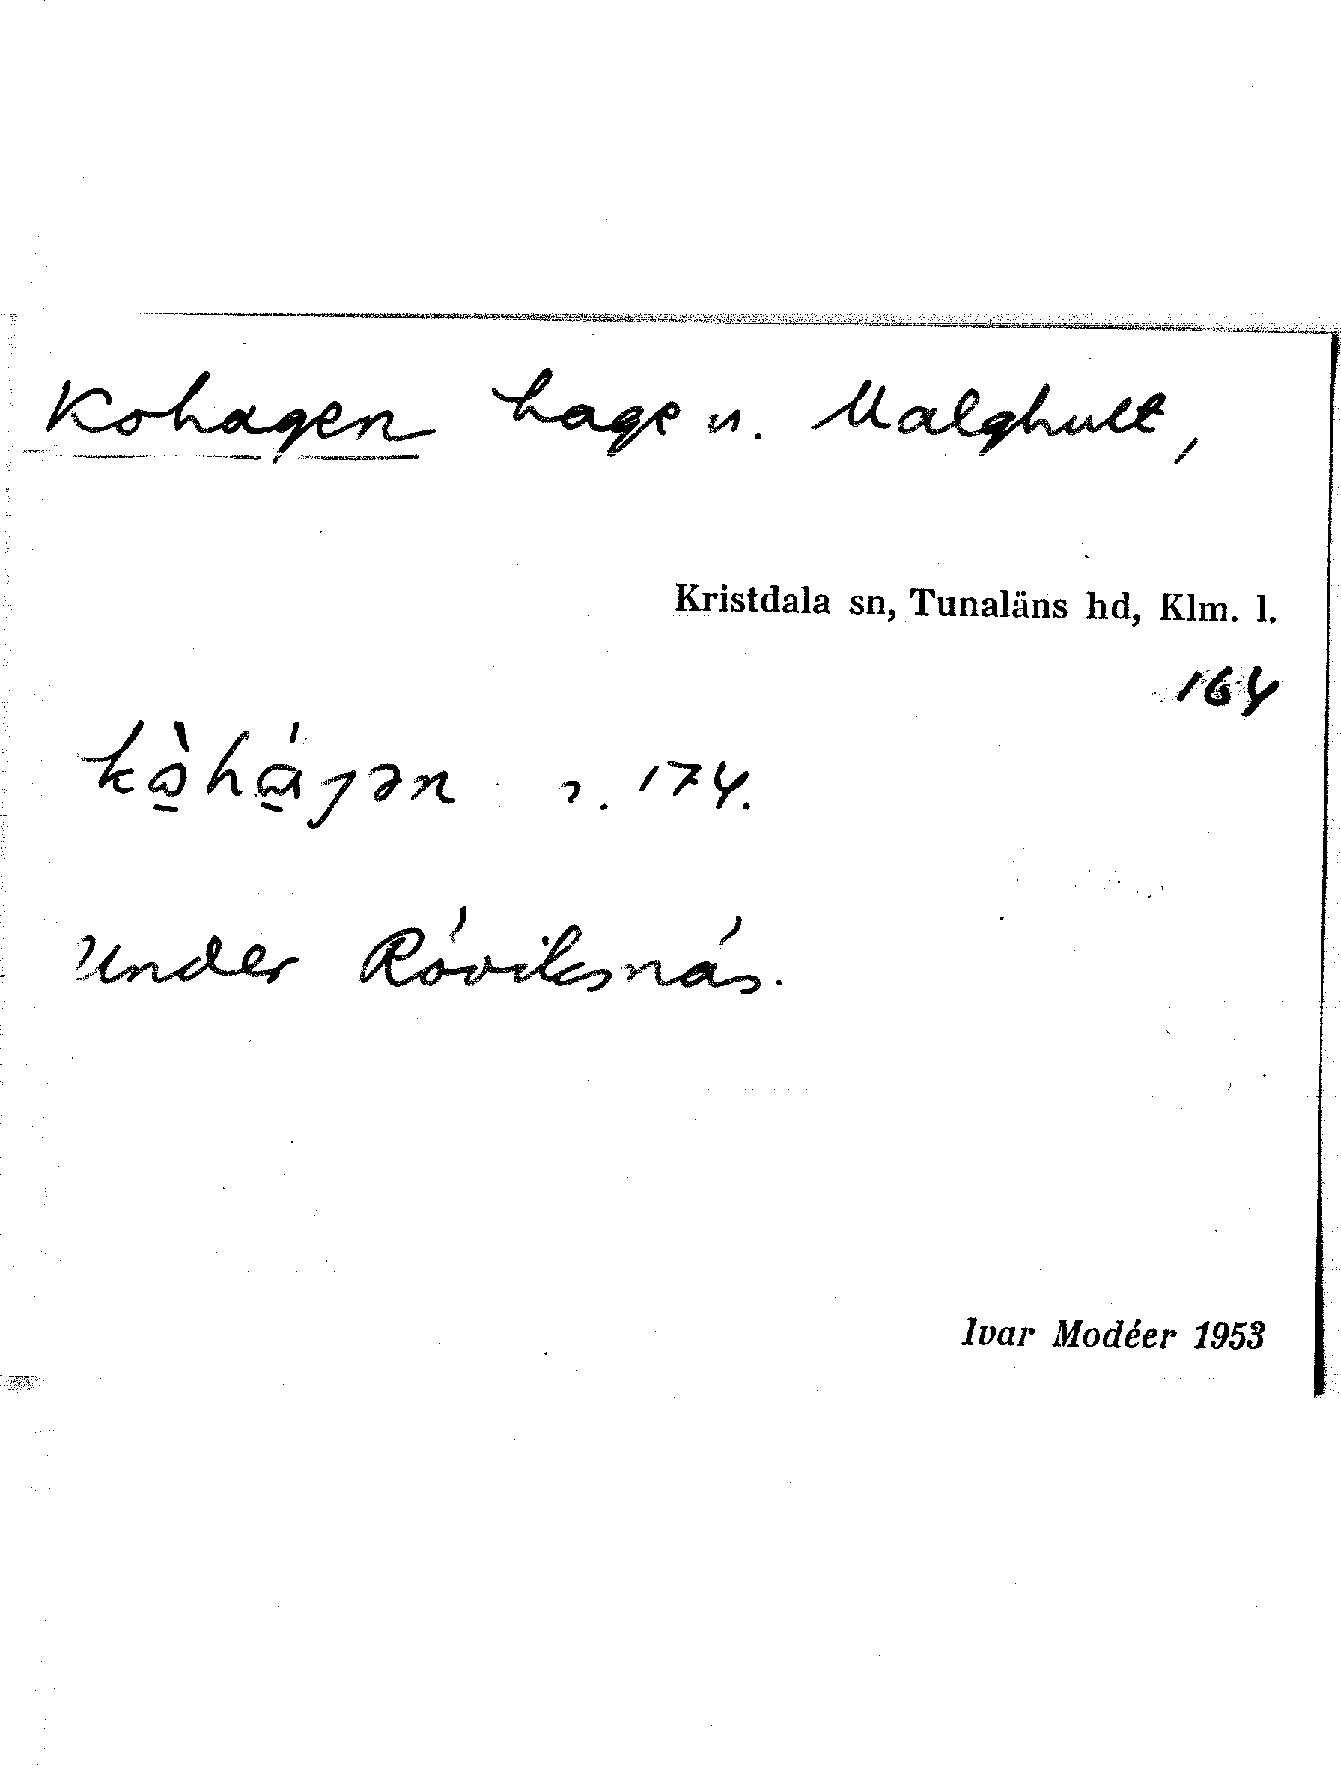 Kohagen hage u. Malghult,
Kristdala sn, Tunaläns hd, Klm. l.
164
s. 174.
Under Röviksnäs.
Ivar Modéer 1953